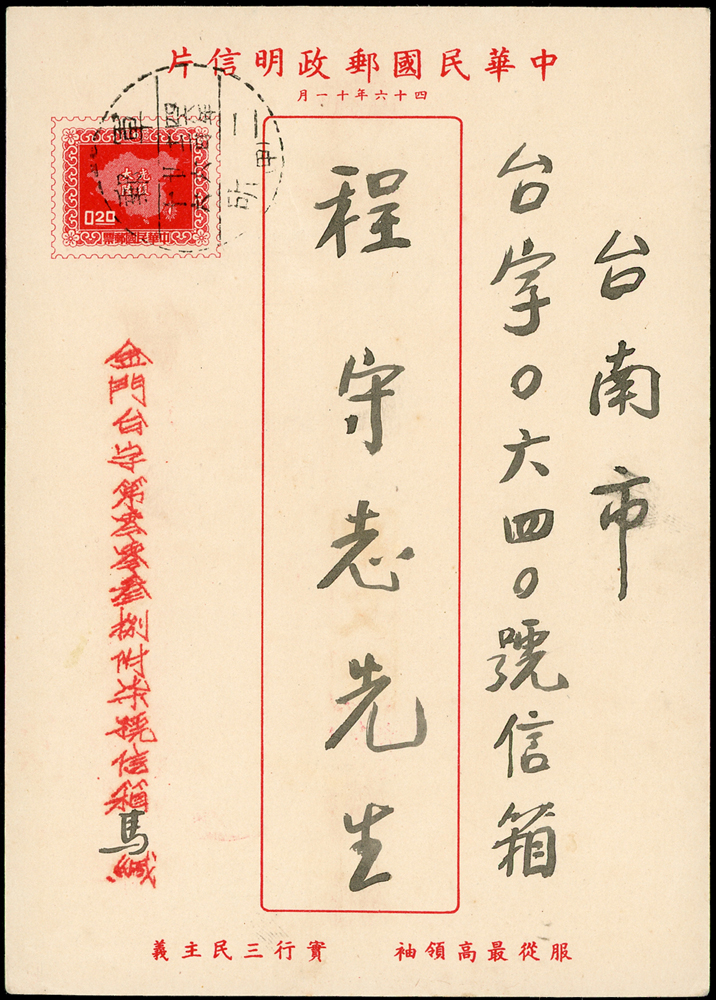 中華民國郵政明信片
四十六年十一月
台南市
台字0六四0號信箱
程守志先生
光復大陸
0.20
中華民國郵票
軍郵
金門台字第零叁捌附柒號信箱馬緘
服從最高領袖 實行三民主義